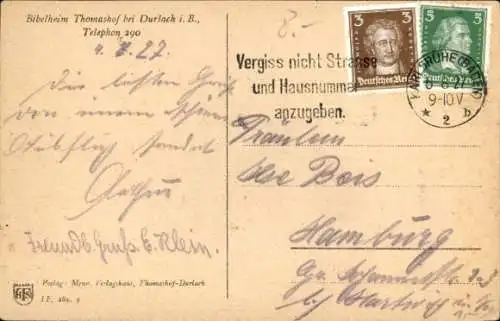 Bibelheim Thomashof bei Durlach i. B.,
Telephon 290
4. 8. 27.
Die besten Grüße
von einem schönen
Ausflug sendet
Freundl. Gruß E. Klein.
Verlag: Menn. Verlagshaus, Thomashof-Durlach
8.-
Vergiss nicht Strasse
und Hausnummer
anzugeben.
3 3
Deutsches Reich
5 5
Deutsches Reich
KARLSRUHE (BADEN)
9-10 V
* 2 b
Fräulein
Else Bois
Hamburg
Gr.
b/ Hartwig